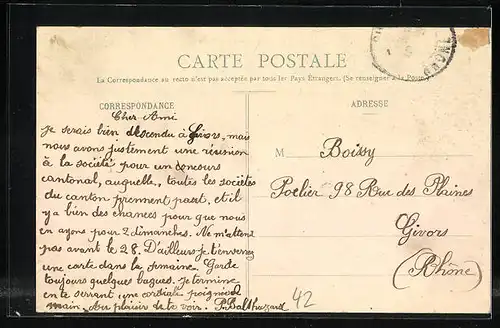 RHONE
CARTE POSTALE
La Correspondance au recto n'est pas acceptée par tous les Pays Étrangers. (Se renseigner à la Poste)
CORRESPONDANCE
ADRESSE
Cher Ami
Je serais bien descendu à Givors, mais
nous avons justement une réunion
à la société pour un concours
cantonal, auquelle, toutes les sociétes
du canton prennent part, et il
y a bien des chances pour que nous
en ayons pour 2 dimanches. Ne m'attent
pas avant le 28. D'ailleurs je t'enverrai
une carte dans la semaine. Garde
toujours quelques bagues. Je termine
en te serrant une cordiale poignée
main. Au plaisir de te voir. P. Balthazard
M Boissy
Poelier 98 Rue des Plaines
Givors
(Rhône)
42